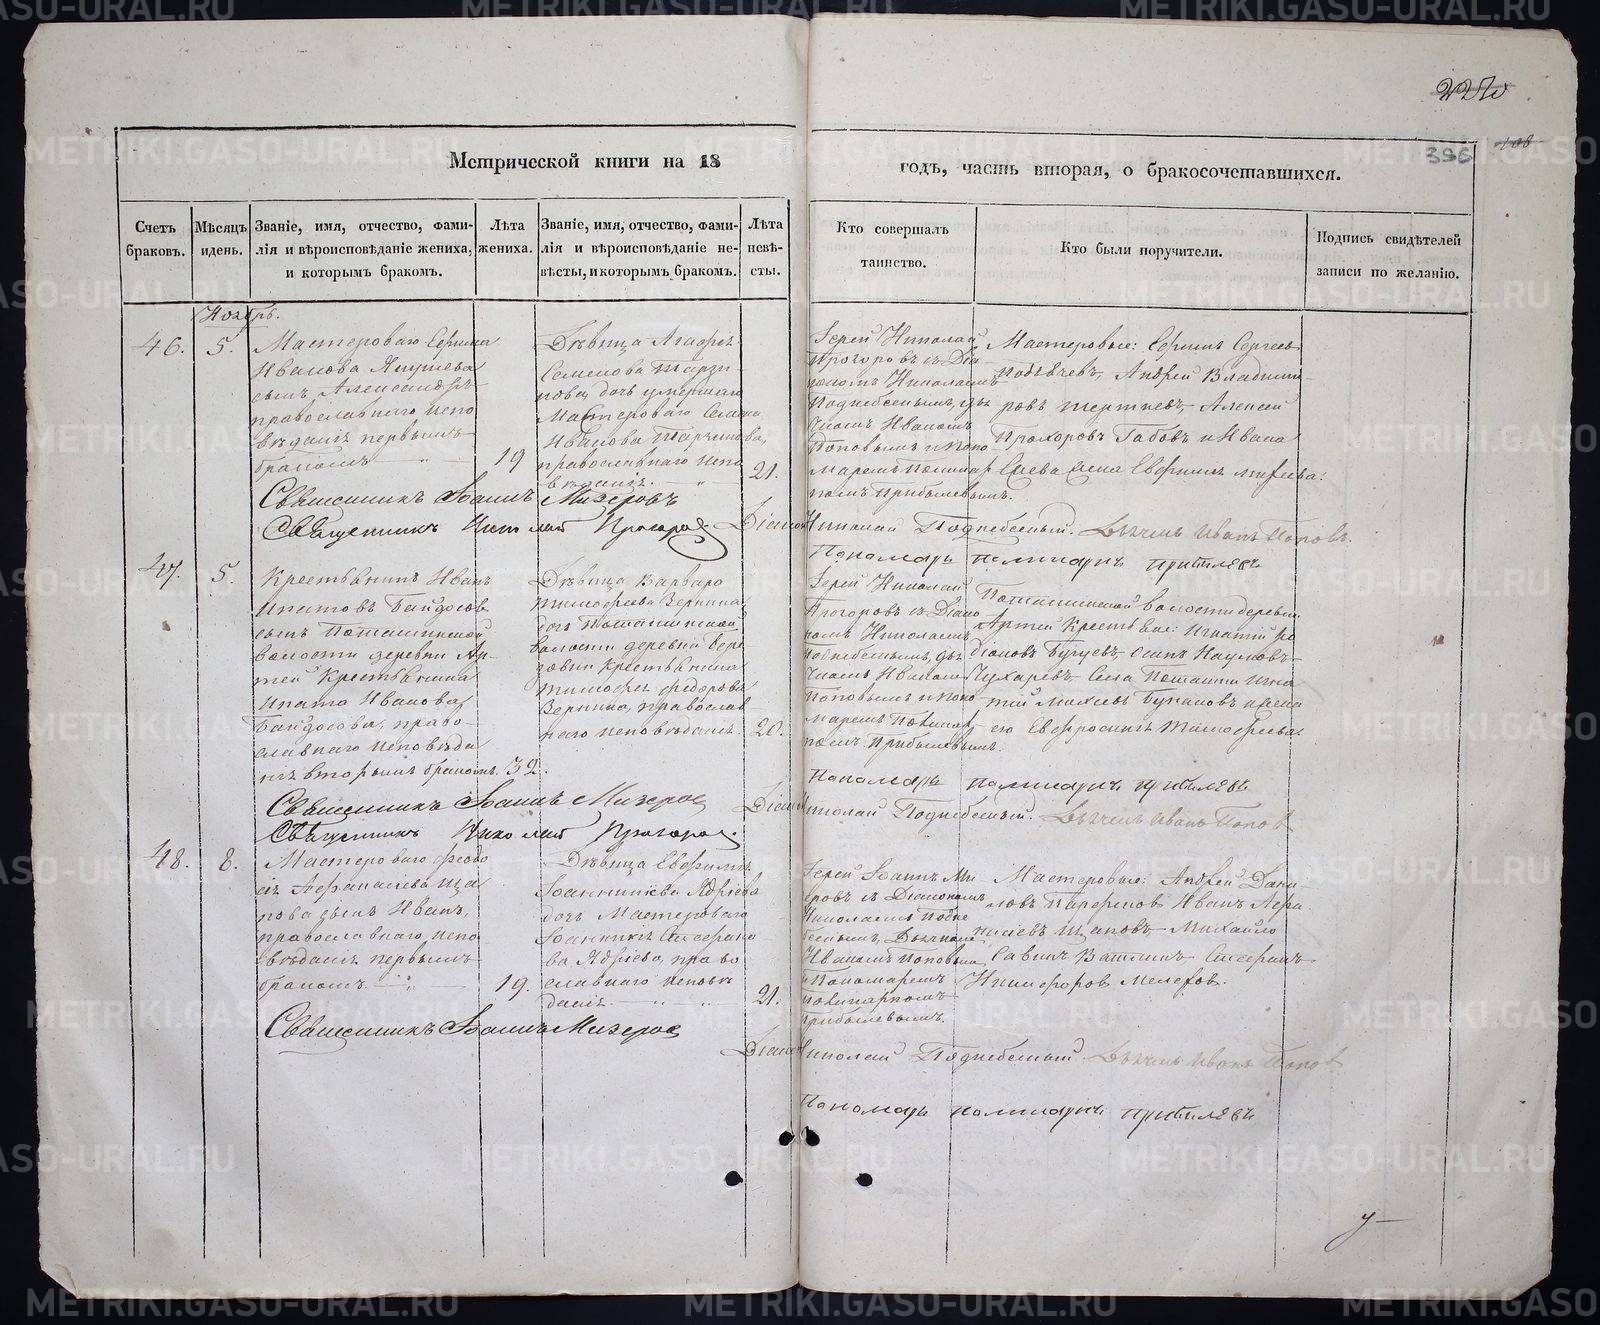 Метрической книги на 18
годъ, часть вторая, о бракосочетавшихся.
396
108
Счетъ браковъ.
Мѣсяцъ и день.
Званіе, имя, отчество, фами-
лія и вѣроисповѣданіе жениха,
и которымъ бракомъ.
Лѣта
жениха.
Званіе, имя, отчество, фами-
лія и вѣроисповѣданіе не-
вѣсты, и которымъ бракомъ.
Лѣта
невѣ-
сты.
Кто совершалъ
таинство.
Кто были поручители.
Подпись свидѣтелей
записи по желанію.
Ноябрь.
46.
5.
Мастероваго Ефима
Иванова
сынъ Александръ
православнаго испо
вѣданія первымъ
бракомъ
19
Дѣвица Агафья
Семенова
дочь умершаго
Мастероваго Семена
Иванова
православнаго испо
вѣданія.
21.
Іерей Николай
Прогоровъ съ Діа
кономъ Николаемъ
Поднебеснымъ, дья
чкомъ Иваномъ
Поповымъ и Поно
маремъ Поликар
помъ Прибылевымъ.
Мастеровые: Ефимъ Сергеевъ
Андрей Владими
ровъ Алексей
Прохоровъ Габовъ и Ивана
Священникъ Іоаннъ Мизеровъ
Священникъ Николай Прогоровъ.
Діаконъ Николай Поднебесный. Дьячекъ Иванъ Поповъ.
Пономарь Поликарпъ Прибылевъ
47.
5.
Крестьянинъ Иванъ
Ипатовъ Байдосов
сынъ Поташинской
волости деревни Ар-
тей Крестьянина
Ипата Иванова
Байдосова, право-
славнаго исповѣда
нія вторымъ бракомъ.
32.
Дѣвица Варвара
Тимофеева Зернина
дочь Поташинской
волости деревни Бере
зовки Крестьянина
Тимофея Федорова
Зернина, православ-
наго исповѣданія.
20.
Іерей Николай
Прогоровъ съ Діако
номъ Николаемъ
Поднебеснымъ, дья
чкомъ Иваномъ
Поповымъ и Поно
маремъ Поликар
помъ Прибылевымъ.
Поташинской волости деревни
Артей Крестьяне: Игнатій Ро
діоновъ Бугуевъ, Осипъ Наумовъ
Чухаревъ Села Поташки Игна
тій
Священникъ Іоаннъ Мизеровъ
Священникъ Николай Прогоровъ.
Пономарь Поликарпъ Прибылевъ
Діаконъ Николай Поднебесный. Дьячекъ Иванъ Поповъ
48.
8.
Мастероваго Федо
сія Афанасіева Ща
пова сынъ Иванъ,
православнаго испо
вѣданія первымъ
бракомъ.
19.
Дѣвица Евфимія
Іоанникіева Ядріева
дочь Мастероваго
Іоанникія Стефано
ва Ядріева, право
славнаго исповѣ
данія.
21.
Іерей Іоаннъ Ми
зеровъ съ Діакономъ
Николаемъ Подне
беснымъ, Дьячкомъ
Иваномъ Поповымъ
и Пономаремъ
Поликарпомъ
Прибылевымъ.
Мастеровые: Андрей Дани
ловъ Парфеновъ Иванъ Афа
насіевъ Щаповъ Михайло
Савинъ Ватлинъ Стефанъ
Никифоровъ Мелеховъ.
Священникъ Іоаннъ Мизеровъ
Діаконъ Николай Поднебесный Дьячекъ Иванъ Поповъ
Пономарь Поликарпъ Прибылевъ